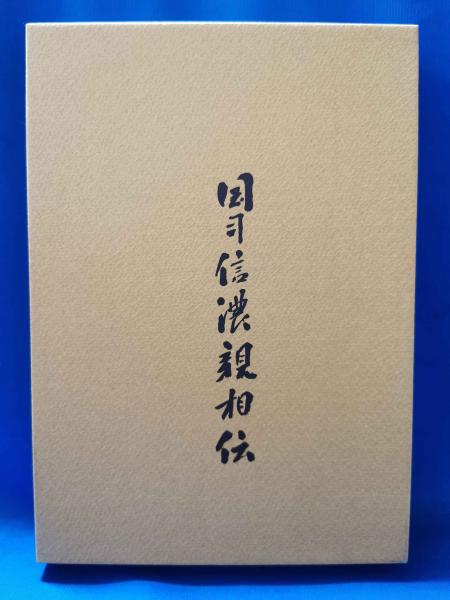 国司信濃親相伝